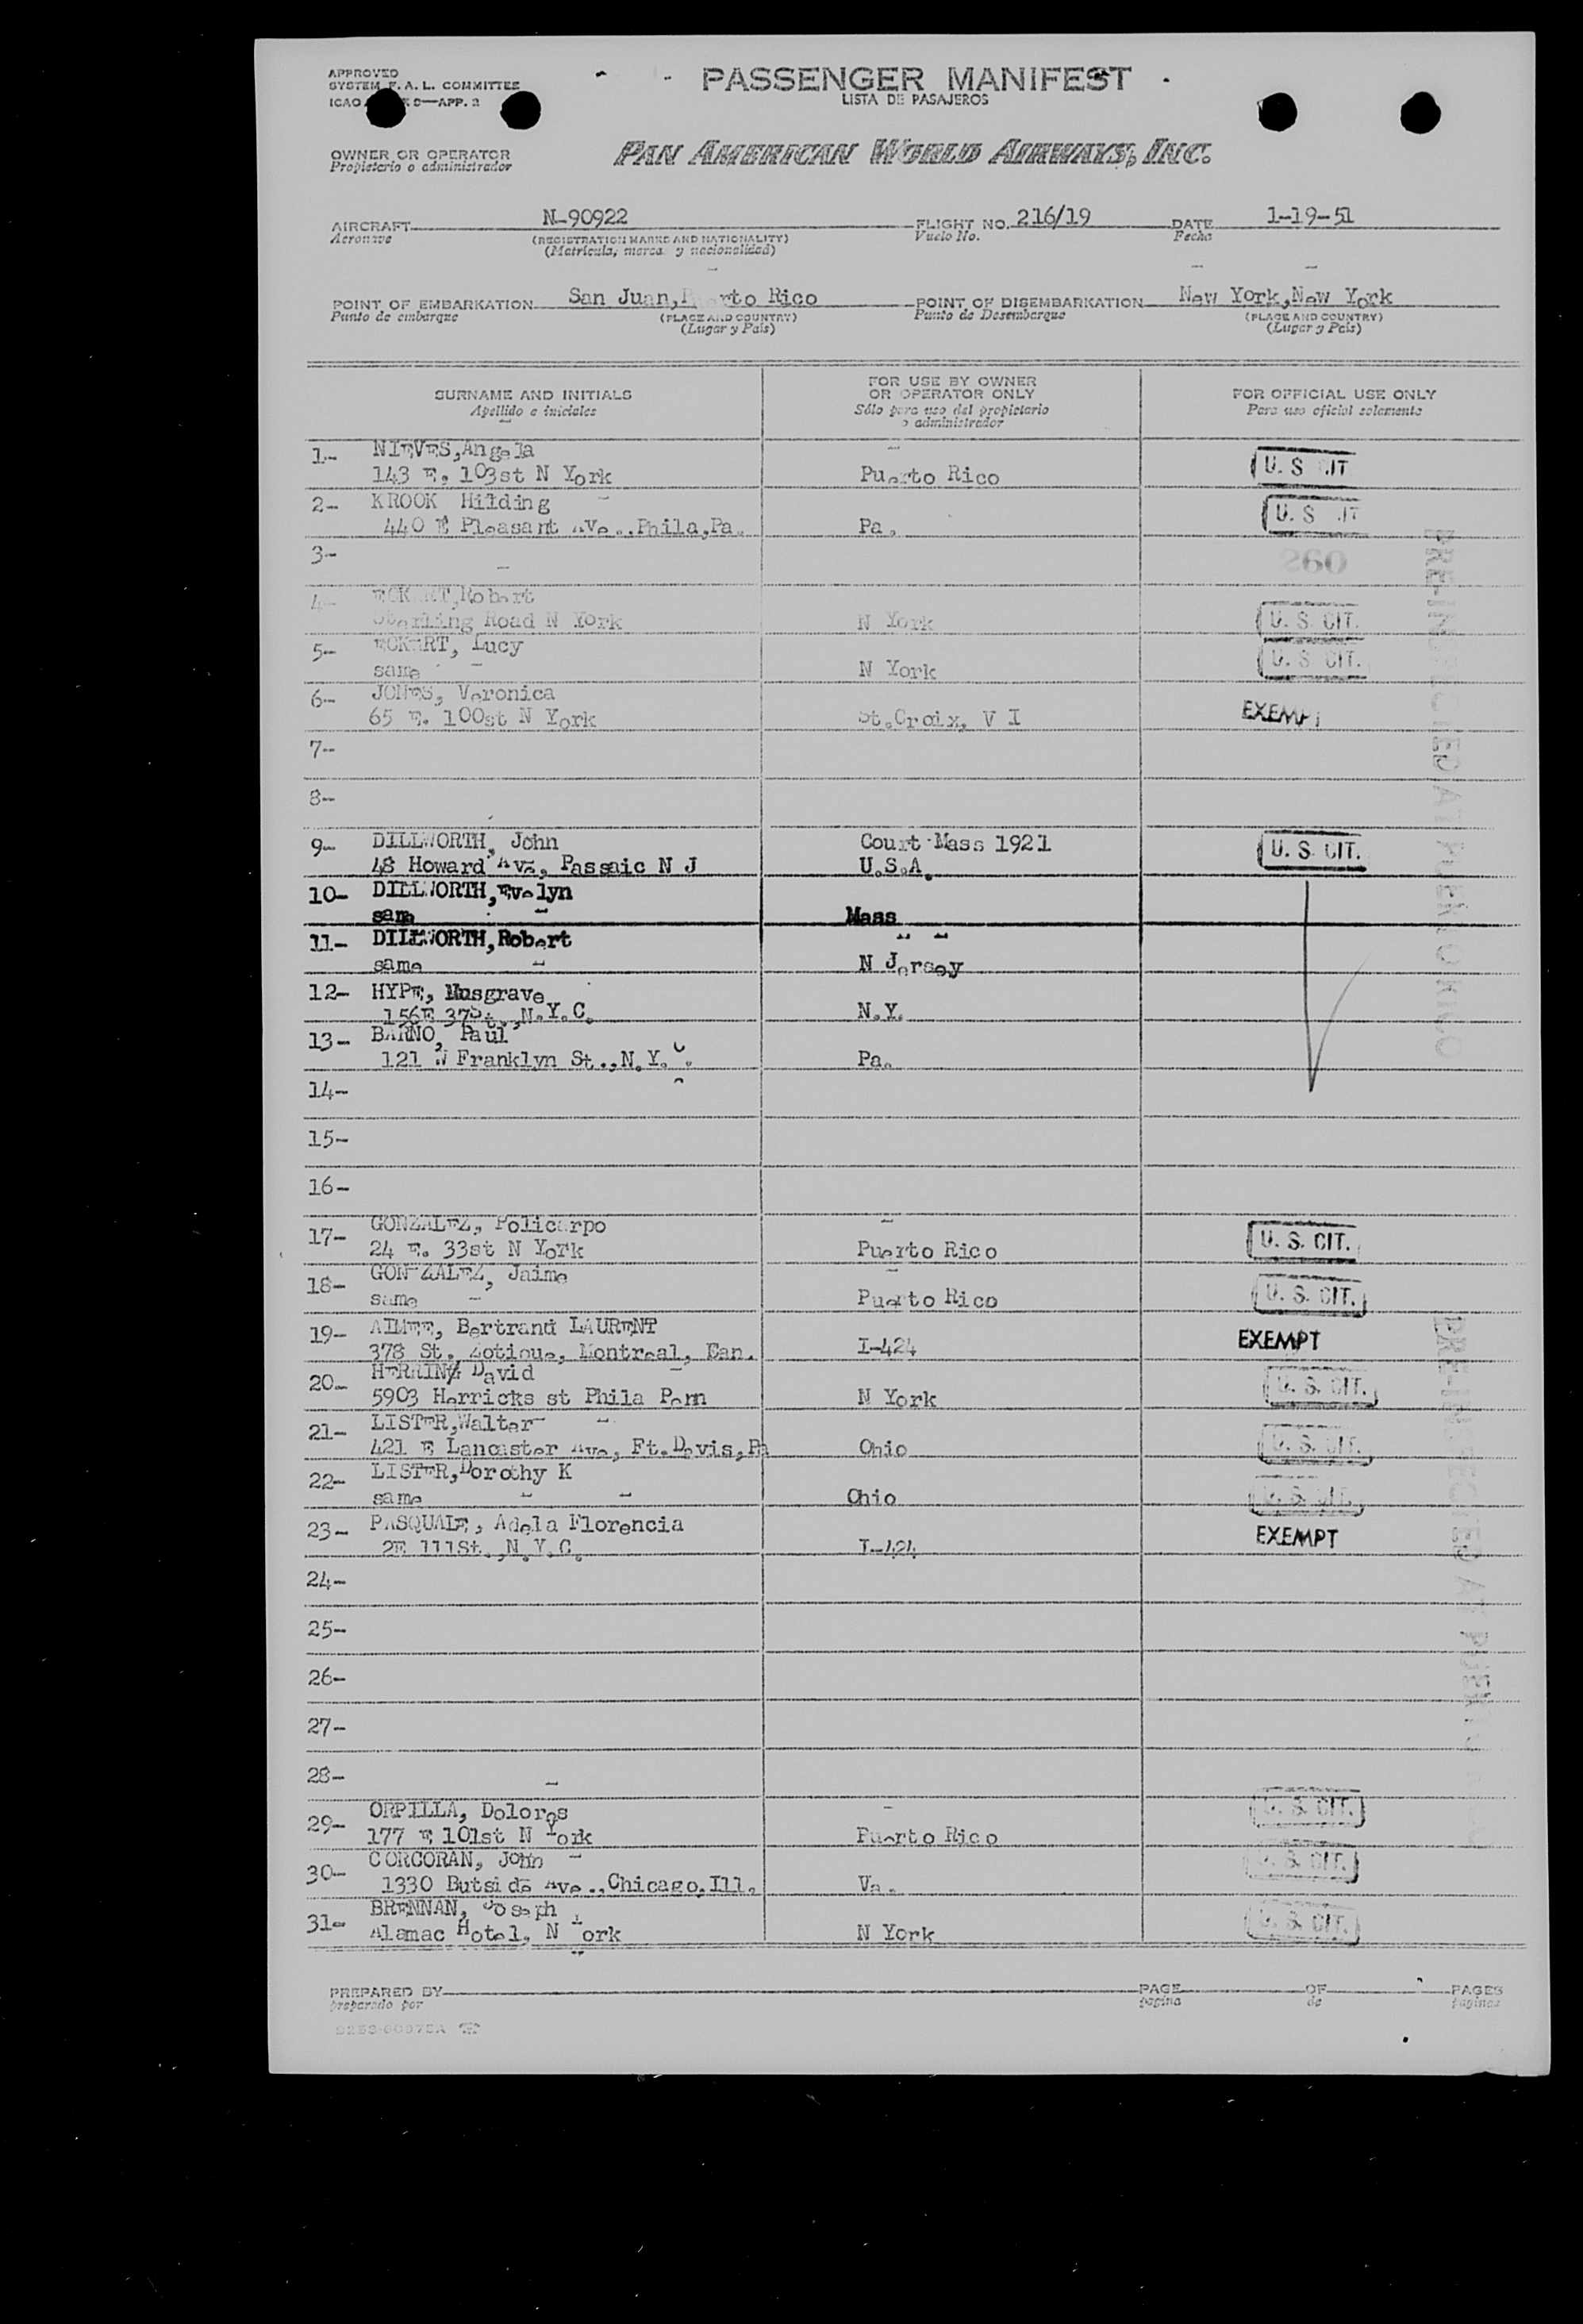 APPROVED
SYSTEM F. A. L. COMMITTEE
ICAO 9—APP. 2
PASSENGER MANIFEST
LISTA DE PASAJEROS
OWNER OR OPERATOR
Propietario o administrador
PAN AMERICAN WORLD AIRWAYS, INC.
AIRCRAFT N-90922 FLIGHT NO. 216/19 DATE 1-19-51
Aeronave (REGISTRATION MARKS AND NATIONALITY) Vuelo No. Fecha
(Matricula, marca y nacionalidad)
POINT OF EMBARKATION San Juan, rto Rico POINT OF DISEMBARKATION New York,New York
Punto de embarque (PLACE AND COUNTRY) Punto de Desembarque (PLACE AND COUNTRY)
(Lugar y Pais) (Lugar y Pais)
SURNAME AND INITIALS
Apellido e iniciales
FOR USE BY OWNER
OR OPERATOR ONLY
Sólo para uso del propietario
o administrador
FOR OFFICIAL USE ONLY
Para uso oficial solamente
1- NIEVES,Angela
143 E. 103st N York Puerto Rico U. S IT
2- KROOK Hilding
440 E Pleasant AVe..Phila,Pa. Pa. U. S IT
3- 260
4- ECKERT,Robert
Sterling Road N York N York U. S. CIT.
5- ECKERT, Lucy
same N York U. S CIT.
6- JONES, Veronica
65 E. 100st N York St.Croix, V I EXEMPT
7-
8-
9- DILLWORTH, John Court Mass 1921
48 Howard Ave, Passaic N J U.S.A. U. S. CIT.
10- DILLWORTH,Evelyn
same Mass
11- DILLWORTH,Robert
same N Jersey
12- HYPE, Musgrave
156E 37St.,N.Y.C. N.Y.
13- BARNO, Paul
121 W Franklyn St.,N.Y.C. Pa.
14-
15-
16-
17- GONZALEZ, Policarpo
24 E. 33st N York Puerto Rico U. S. CIT.
18- GONZALEZ, Jaime
same Puerto Rico U. S. CIT.
19- AIMEE, Bertrand LAURENT
378 St. Zotique, Montreal, Can. I-424 EXEMPT
20- David
5903 Herricks st Phila Penn N York U. S. CIT.
21- LISTER,Walter
421 E Lancaster Ave, Ft.Davis,Pa Ohio U. S. CIT.
22- LISTER,Dorothy K
same Ohio U. S. CIT.
23- PASQUALE, Adela Florencia
2E 111St.,N.Y.C. I-424 EXEMPT
24-
25-
26-
27-
28-
29- ORPILLA, Dolores
177 E 101st N York Puerto Rico U. S. CIT.
30- CORCORAN, John
1330 Butside Ave.,Chicago,Ill. Va. U. S. CIT.
31- BRENNAN, Joseph
Alamac Hotel, N York N York U. S. CIT.
PRE-INSPECTED AT PUERTO RICO
PRE-INSPECTED AT PUERTO RICO
PREPARED BY PAGE OF PAGES
preparado por pagina de paginas